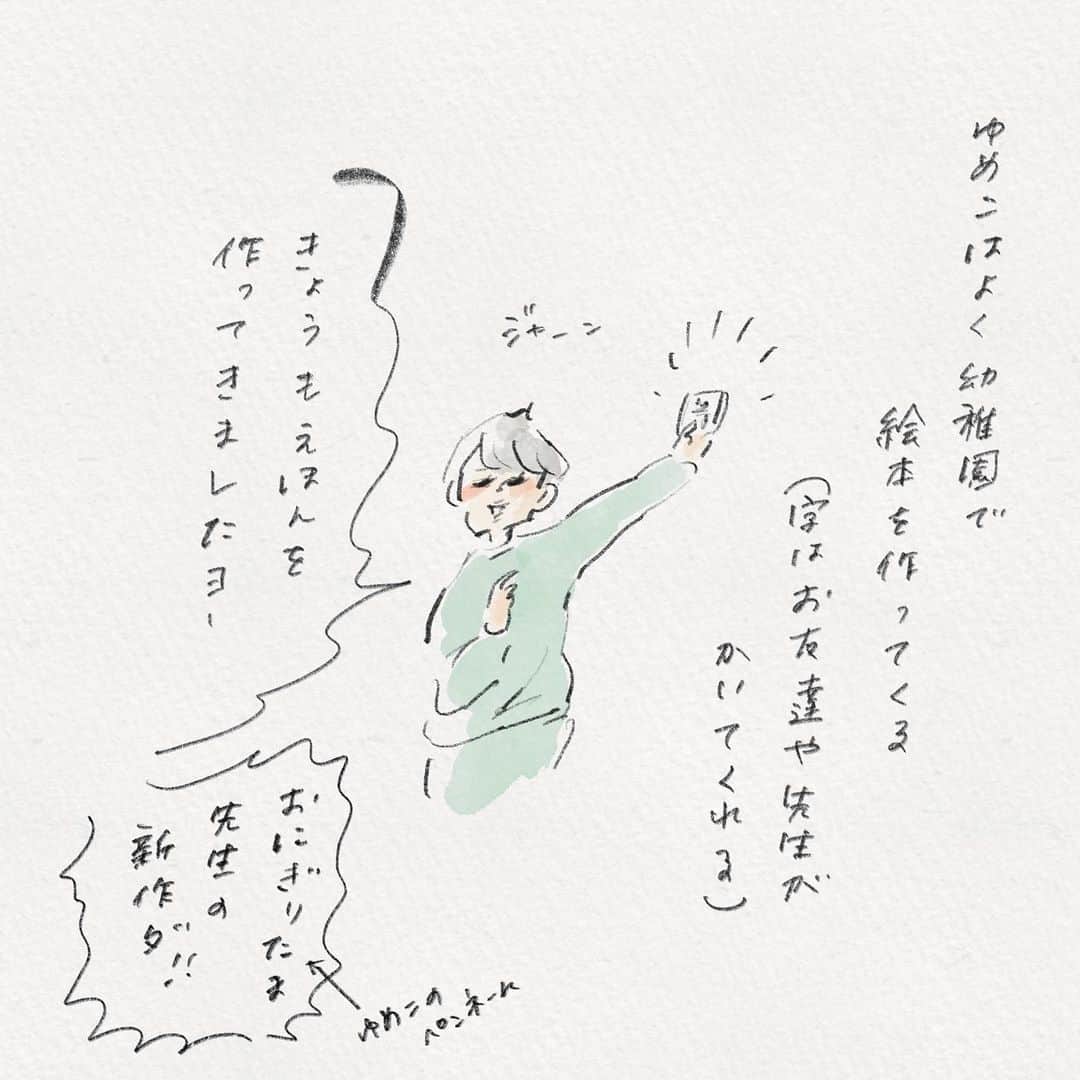 ゆめこはよく幼稚園で
絵本を作ってくる
（字はお友達や先生が
かいてくれる）
ジャーン
きょうもえほんを
作ってきましたヨー
おにぎりたま
先生の
新作ダ!!
ゆめこの
ペンネーム